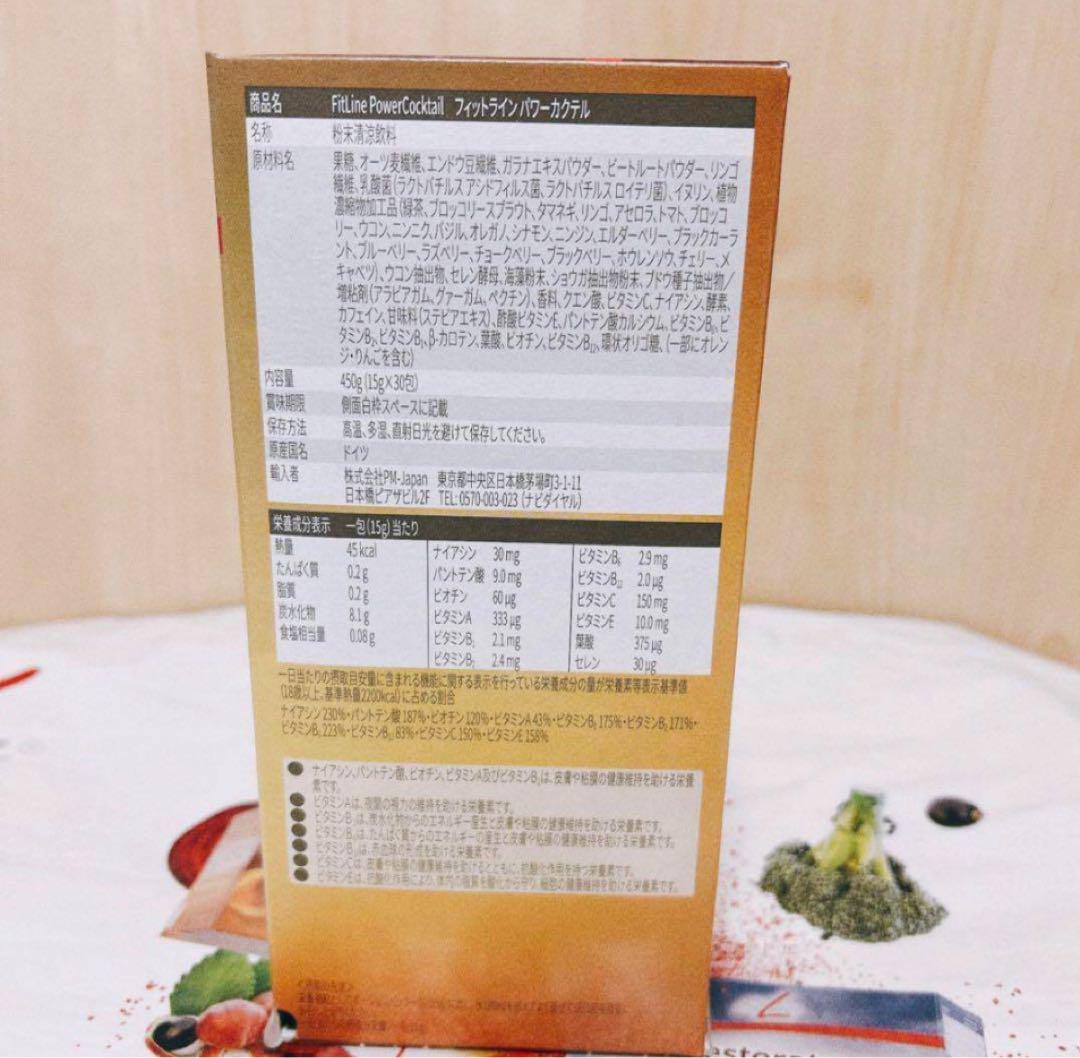 商品名 FitLine PowerCocktail フィットライン パワーカクテル
名称 粉末清涼飲料
原材料名 果糖、オーツ麦繊維、エンドウ豆繊維、ガラナエキスパウダー、ビートルートパウダー、リンゴ
繊維、乳酸菌(ラクトバチルス アシドフィルス菌、ラクトバチルス ロイテリ菌)、イヌリン、植物
濃縮物加工品(緑茶、ブロッコリースプラウト、タマネギ、リンゴ、アセロラ、トマト、ブロッコ
リー、ウコン、ニンニク、バジル、オレガノ、シナモン、ニンジン、エルダーベリー、ブラックカーラ
ント、ブルーベリー、ラズベリー、チョークベリー、ブラックベリー、ホウレンソウ、チェリー、メ
キャベツ)、ウコン抽出物、セレン酵母、海藻粉末、ショウガ抽出物粉末、ブドウ種子抽出物/
増粘剤(アラビアガム、グァーガム、ペクチン)、香料、クエン酸、ビタミンC、ナイアシン、酵素、
カフェイン、甘味料(ステビアエキス)、酢酸ビタミンE、パントテン酸カルシウム、ビタミンB₆、ビ
タミンB₂、ビタミンB₁、β-カロテン、葉酸、ビオチン、ビタミンB₁₂、環状オリゴ糖、(一部にオレン
ジ・りんごを含む)
内容量 450g(15g×30包)
賞味期限 側面白枠スペースに記載
保存方法 高温、多湿、直射日光を避けて保存してください。
原産国名 ドイツ
輸入者 株式会社PM-Japan 東京都中央区日本橋茅場町3-1-11
日本橋ピアザビル2F TEL:0570-003-023 (ナビダイヤル)
栄養成分表示 一包(15g)当たり
熱量 45kcal
たんぱく質 0.2g
脂質 0.2g
炭水化物 8.1g
食塩相当量 0.08g
ナイアシン 30mg
パントテン酸 9.0mg
ビオチン 60μg
ビタミンA 333μg
ビタミンB₁ 2.1mg
ビタミンB₂ 2.4mg
ビタミンB₆ 2.9mg
ビタミンB₁₂ 2.0μg
ビタミンC 150mg
ビタミンE 10.0mg
葉酸 375μg
セレン 30μg
一日当たりの摂取目安量に含まれる機能に関する表示を行っている栄養成分の量が栄養素等表示基準値
(18歳以上、基準熱量2200kcal)に占める割合
ナイアシン230%・パントテン酸187%・ビオチン120%・ビタミンA43%・ビタミンB₁175%・ビタミンB₂171%・
ビタミンB₆223%・ビタミンB₁₂83%・ビタミンC150%・ビタミンE158%
ナイアシン、パントテン酸、ビオチン、ビタミンA及びビタミンB₂は、皮膚や粘膜の健康維持を助ける栄養
素です。
ビタミンAは、夜間の視力の維持を助ける栄養素です。
ビタミンB₁は、炭水化物からのエネルギー産生と皮膚や粘膜の健康維持を助ける栄養素です。
ビタミンB₆は、たんぱく質からのエネルギーの産生と皮膚や粘膜の健康維持を助ける栄養素です。
ビタミンB₁₂は、赤血球の形成を助ける栄養素です。
ビタミンCは、皮膚や粘膜の健康維持を助けるとともに、抗酸化作用を持つ栄養素です。
ビタミンEは、抗酸化作用により、体内の脂質を酸化から守り、細胞の健康維持を助ける栄養素です。